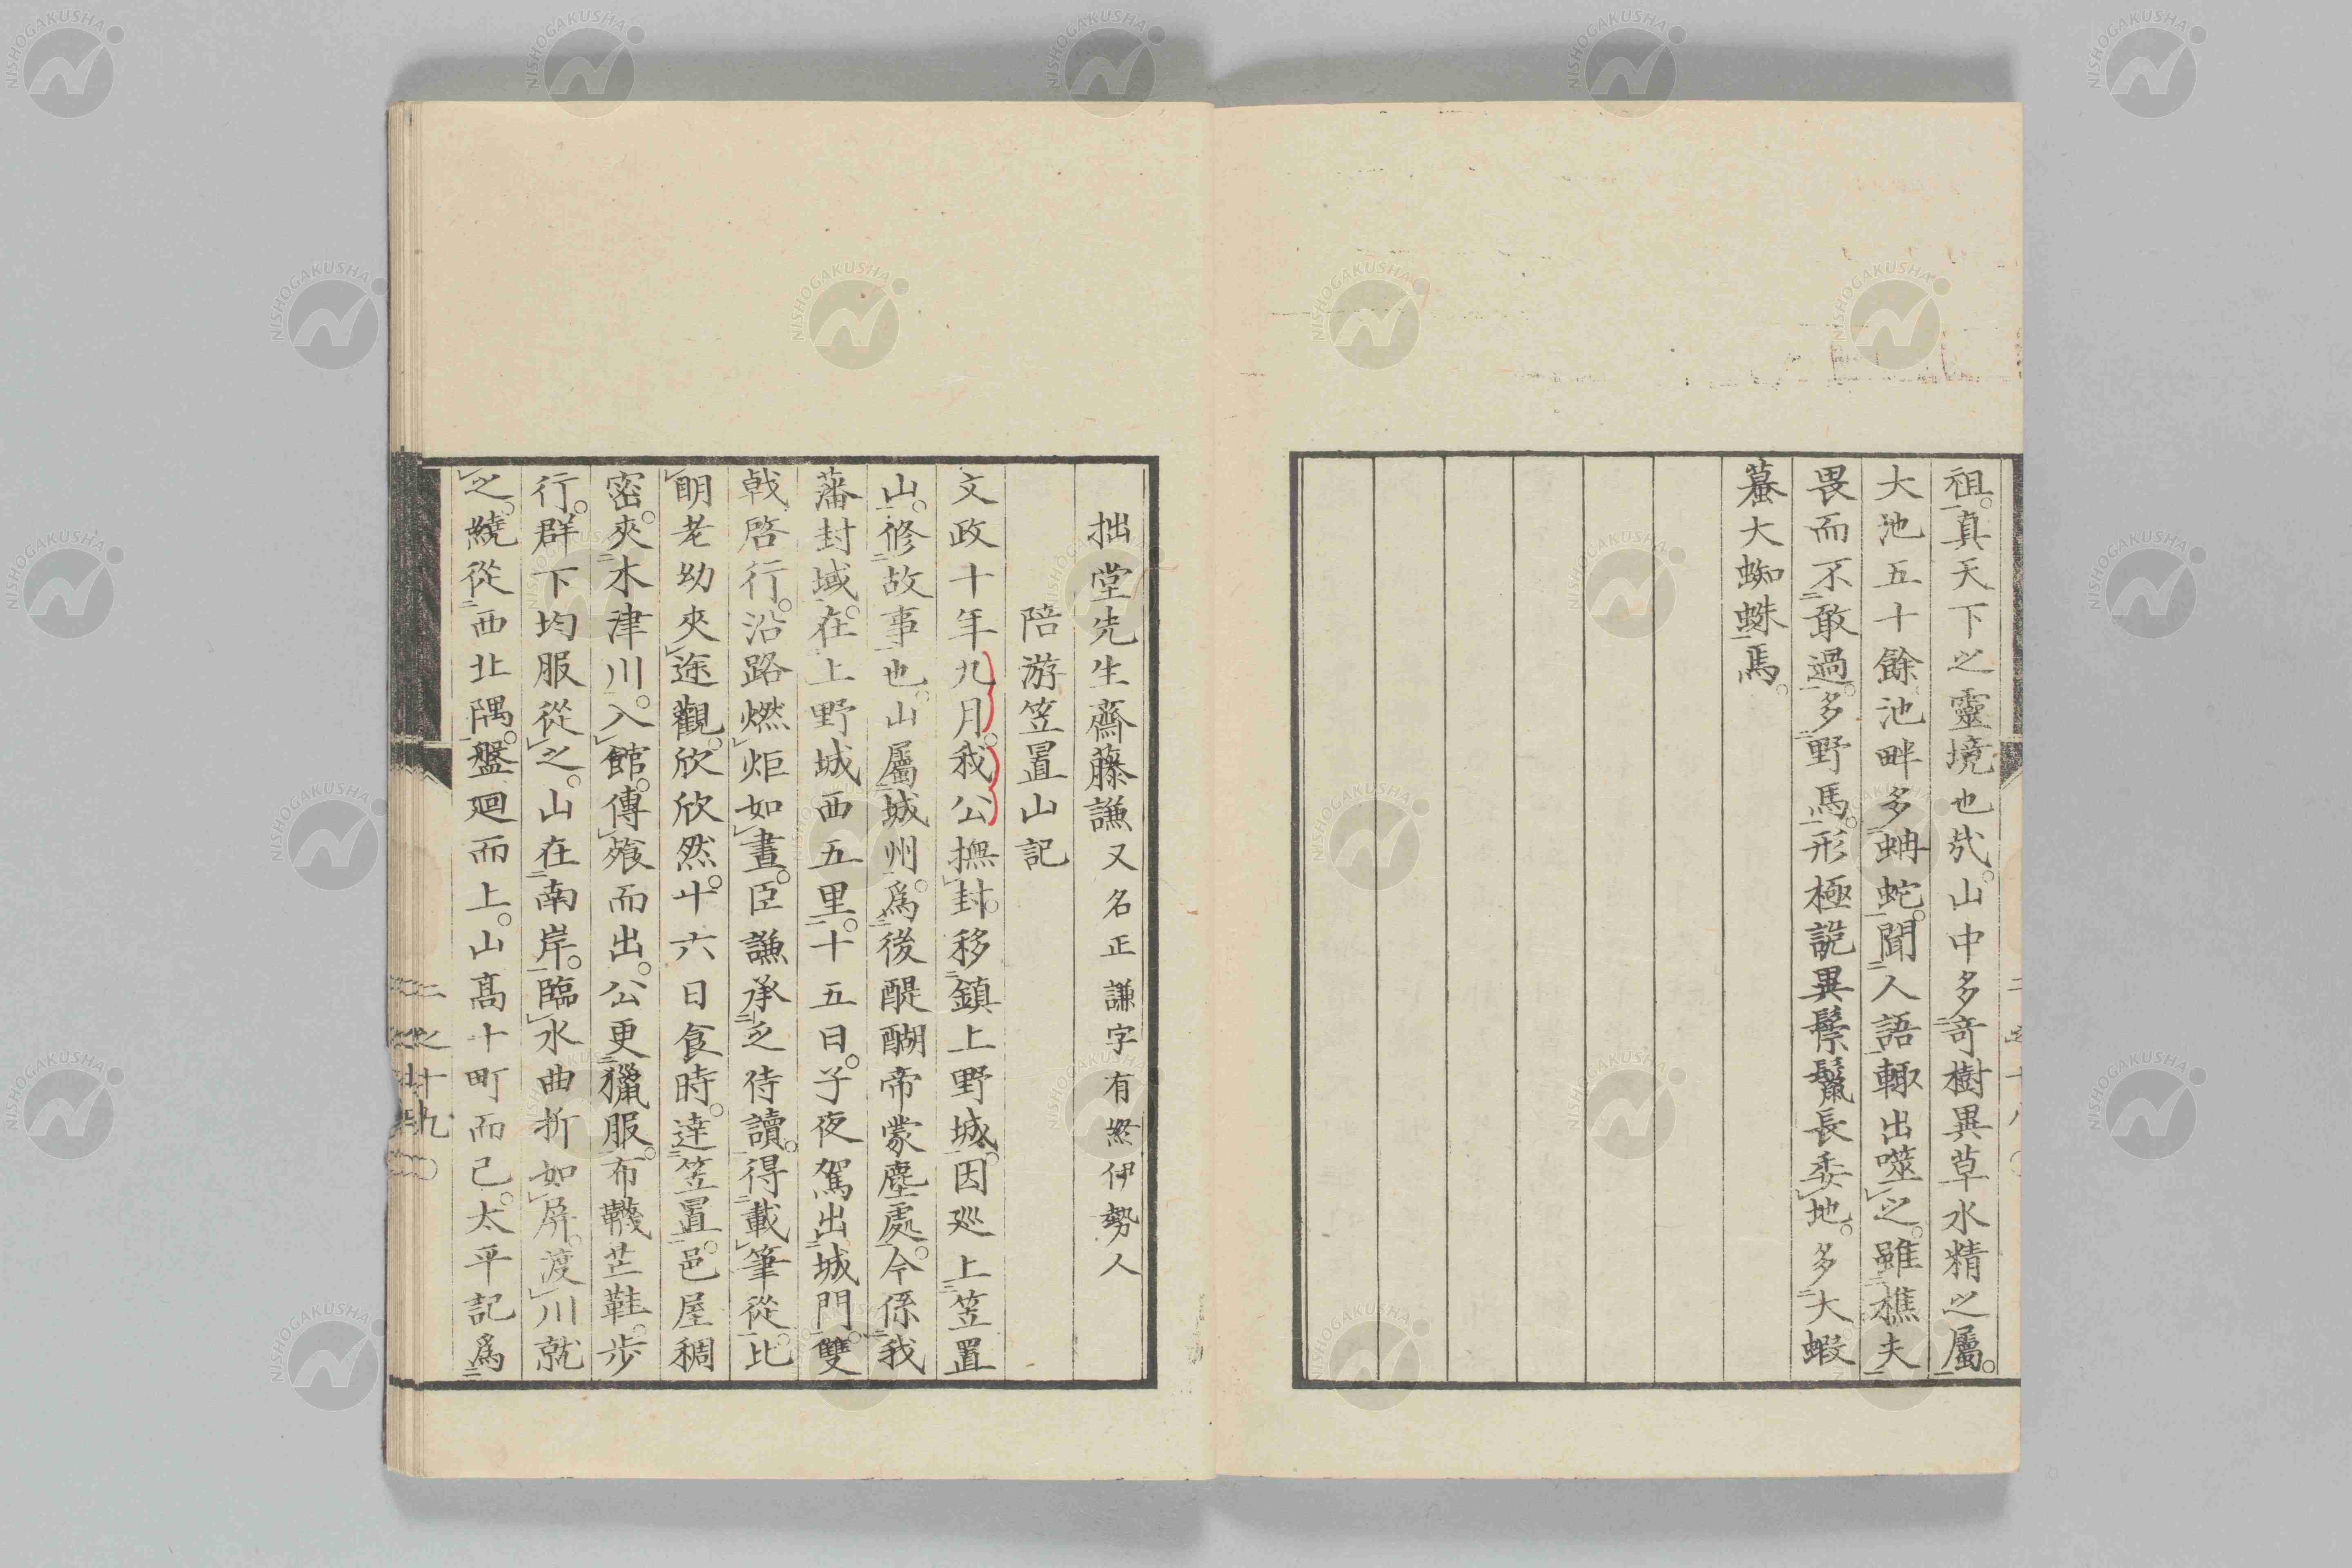 祖。真天下之靈境也哉。山中多奇樹異草水精之屬。
大池五十餘池畔多蚺蛇。聞人語輙出噬之。雖樵夫
畏而不敢過。多野馬。形極詭異鬃鬣長委地。多大蝦
蟇大蜘蛛焉。
拙堂先生齋藤謙又名正謙字有終伊勢人
陪游笠置山記
文政十年九月。我公撫封。移鎮上野城。因巡上笠置
山。修故事也。山屬城州。爲後醍醐帝蒙塵處。今係我
藩封域。在上野城西五里。十五日。子夜駕出城門。雙
戟啓行。沿路燃炬如晝。臣謙承乏侍讀。得載筆從。比
明老幼夾途觀。欣欣然。十六日食時。達笠置。邑屋稠
密。夾木津川。入館。傳飱而出。公更獵服。布韈芷鞋。步
行。群下均服從之。山在南岸。臨水曲折如屏。渡川就
之。繞從西北隅。盤廻而上。山高十町而已。太平記爲
二之十九
NISHOGAKUSHA